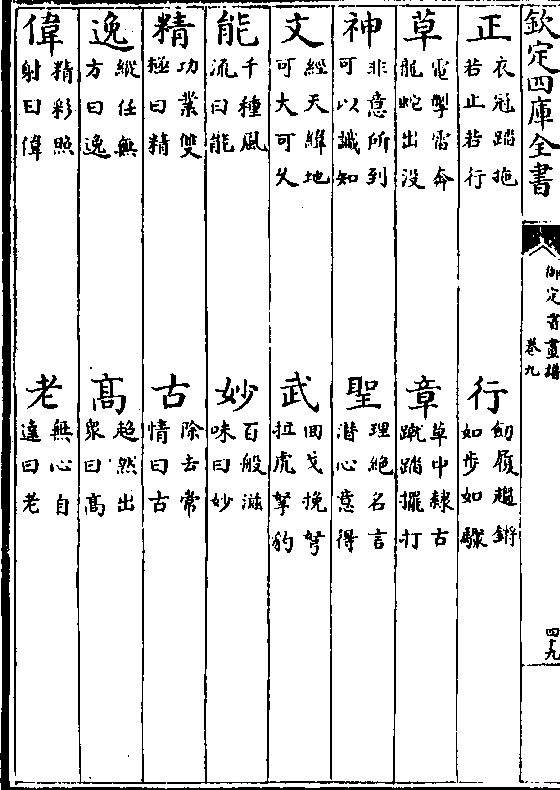 欽定四庫全書
御定書畫譜
卷九
四九
正 衣冠踏拖
若止若行
行 劒履趨鏘
如步如驟
草 電掣雷奔
龍蛇出没
章 草中隸古
蹴踏擺打
神 非意所到
可以識知
聖 理絶名言
潛心意得
文 經天緯地
可大可久
武 回戈挽弩
拉虎拏豹
能 千種風
流曰能
妙 百般滋
味曰妙
精 功業雙
極曰精
古 除去常
情曰古
逸 縱任無
方曰逸
髙 超然出
衆曰髙
偉 精彩照
射曰偉
老 無心自
達曰老